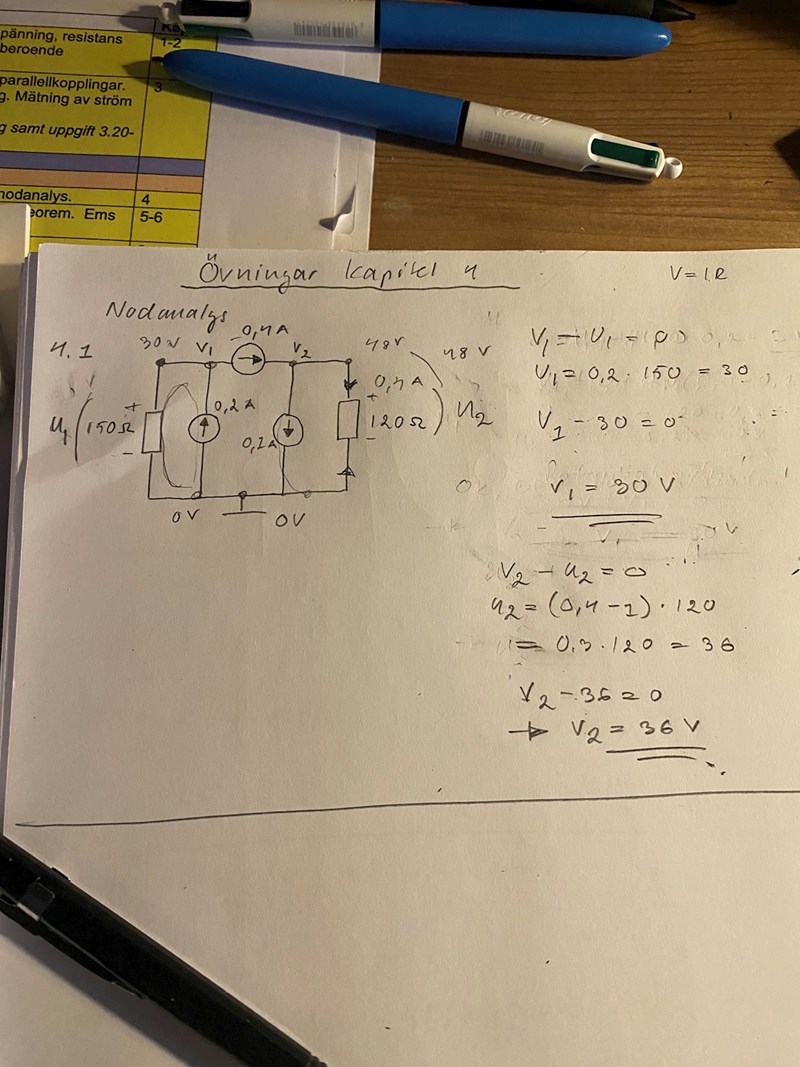 pänning, resistans
beroende
1-2
parallellkopplingar.
g. Mätning av ström
3
g samt uppgift 3.20-
nodanalys.
4
eorem. Ems
5-6
Övningar kapitel 4
V=IR
Nodanalys
4.1
30V
V1
0,4A
V2
48V
48 V
U1
+
150Ω
-
0,2A
0,2A
0,4A
+
120Ω
-
U2
0V
0V
V1 - U1 = 0
U1 = 0,2 · 150 = 30
V1 - 30 = 0
V1 = 30 V
V2 - U2 = 0
U2 = (0,4-1) · 120
= 0,3 · 120 = 36
V2 - 36 = 0
→ V2 = 36 V